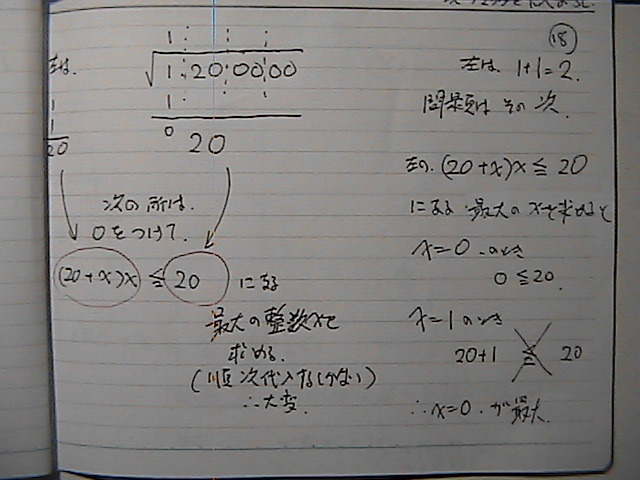 18
1
√1.20 00 00
1
0
20
左は.
1
1
20
次の所は.
0をつけて.
(20+x)x ≦ 20 になる
最大の整数xを
求める.
(順次代入するしかない)
∴大変.
左は. 1+1=2.
問題は その次.
左の. (20+x)x ≦ 20
になる 最大の xを求めると
x=0 のとき
0 ≦ 20.
x=1 のとき
20+1 ≦ 20
∴x=0. が最大.